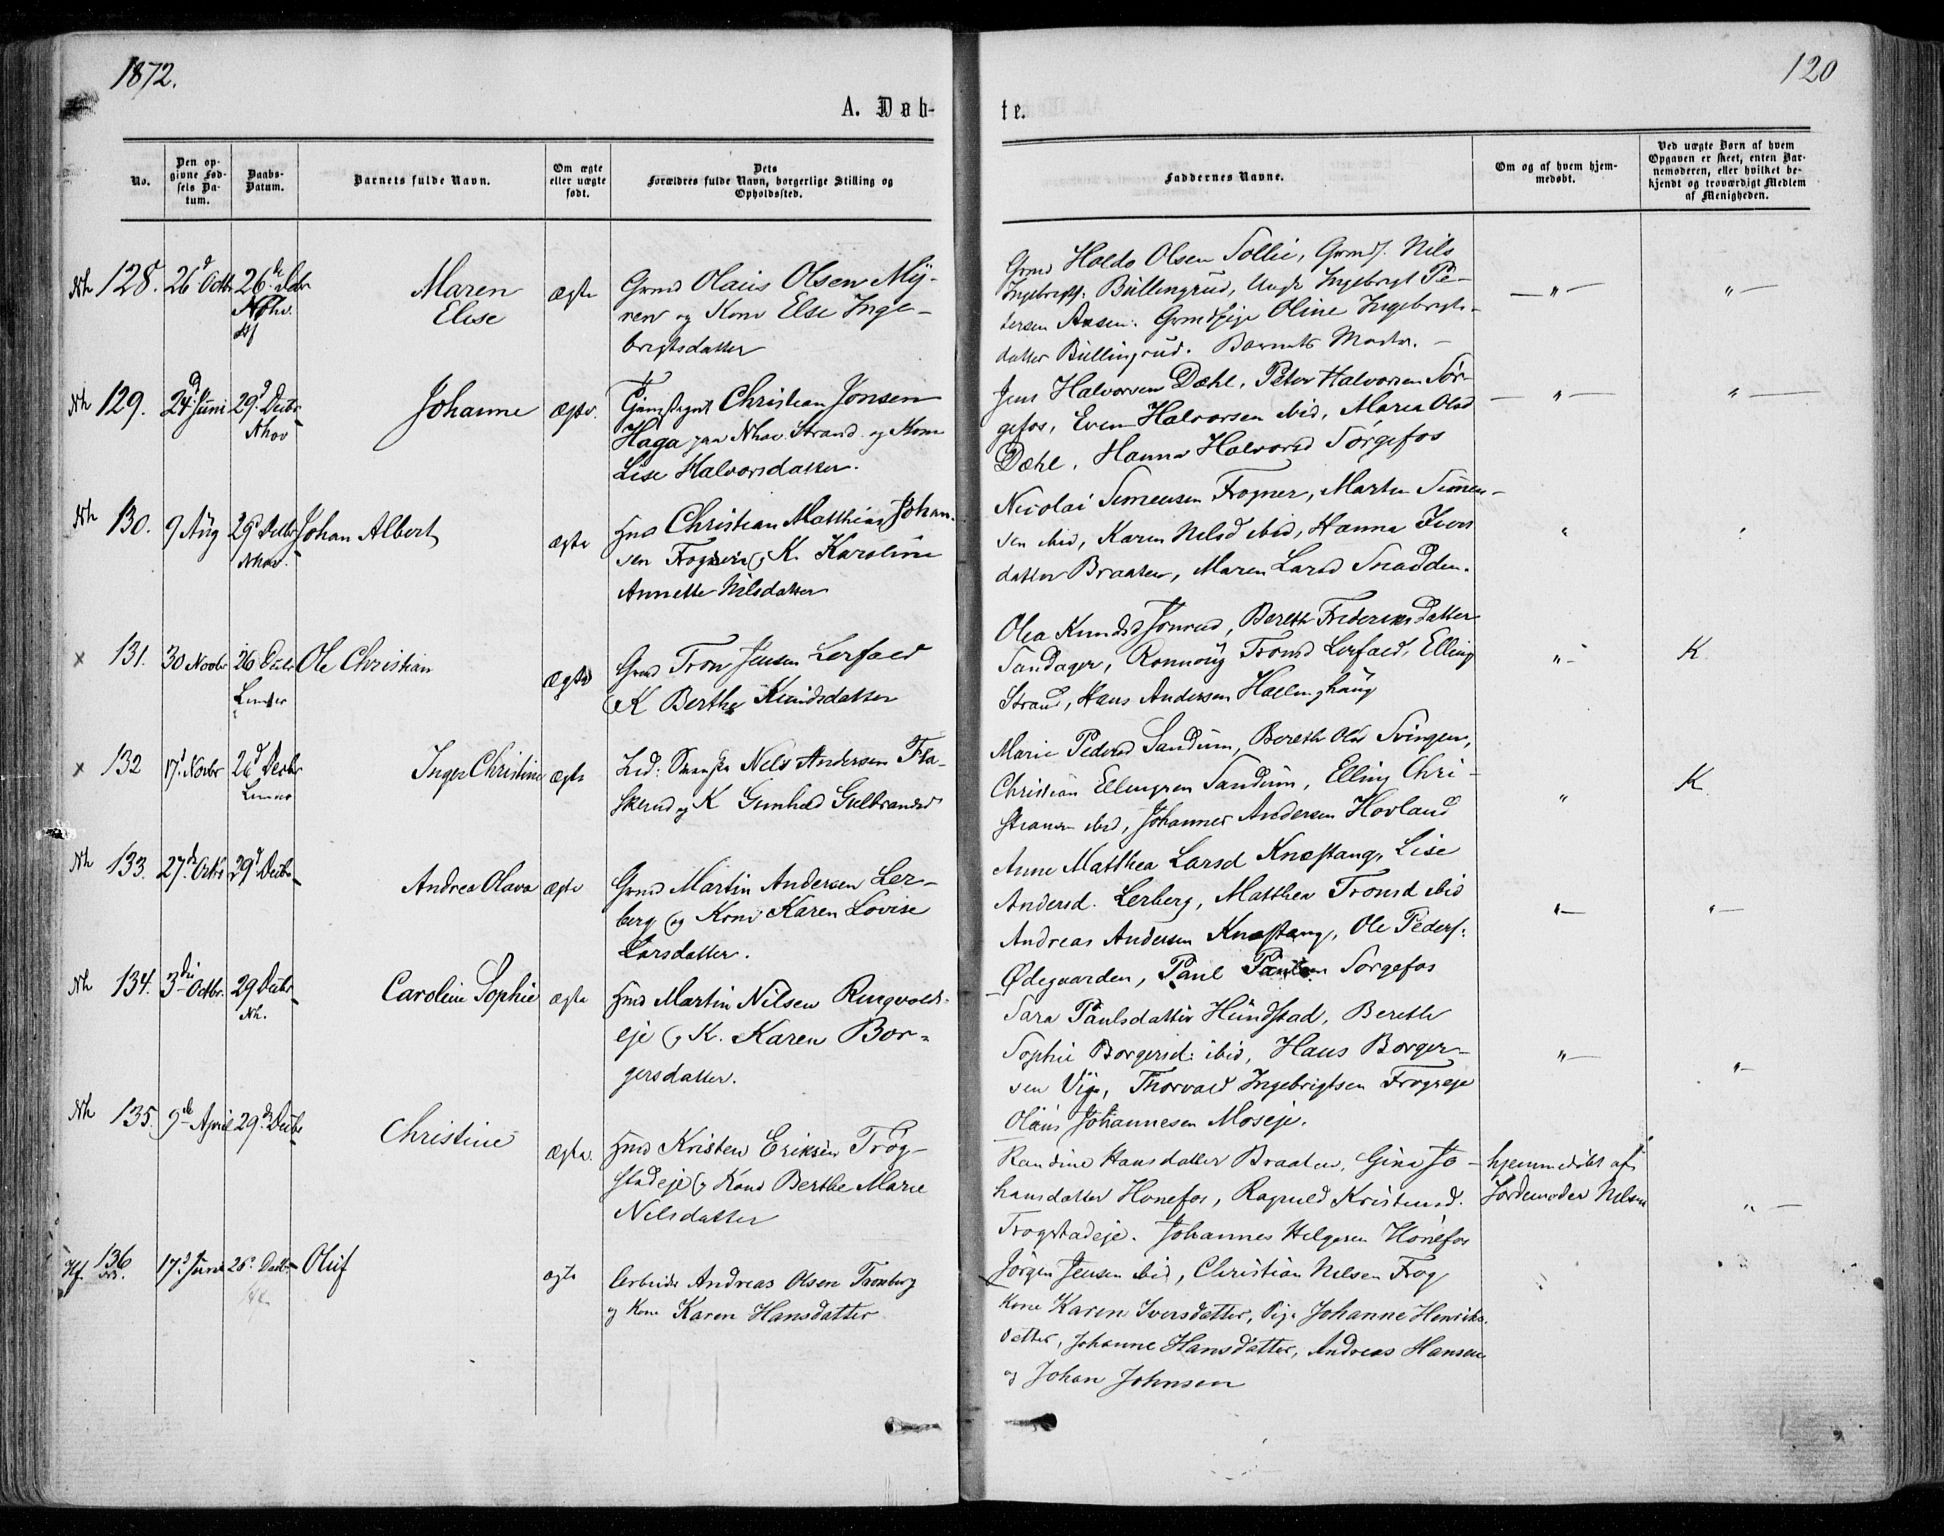 1872.
120
A. Døb-
te.
No.
Den op-
givne Fød-
sels Da-
tum.
Daabs-
Datum.
Barnets fulde Navn.
Om ægte
eller uægte
født.
Dets
Forældres fulde Navn, borgerlige Stilling og
Opholdssted.
Faddernes Navne.
Om og af hvem hjem-
medøbt.
Ved uægte Børn af hvem
Opgaven er skeet, enten Bar-
nemoderen, eller hvilket be-
kjendt og troværdigt Medlem
af Menigheden.
Nh 128. 26d Octbr 26de Decbr
Nhov.
Maren
Elise
ægte
Gmd Olaus Olsen My-
ren og Kone Else Inge-
brigtsdatter
Gmd Holds Olsen Sollie, Gmds. Nils
Ingebrigts. Bullingrud, Ungk Ingebrigt Pe-
dersen Aasen. Gmdpige Oline Ingebrigts-
datter Bullingrud. Barnets Moster.
Nh 129. 24d Juni 29d Decbr
Nhov
Johanne
ægte.
Christian Jonsen
Haga paa Nhov. Strand og Kone
Lise Halvorsdatter.
Jens Halvorsen Dæhl, Peter Halvorsen Sør-
gefos, Even Halvorsen ibid, Maria Olsd
Dæhl, Hanna Halvorsd Sørgefos
Nh 130. 9 Aug 26d Decbr
Nhov.
Johan Albert
ægte
Hmd Christian Matthias Johan-
sen Frogner og K. Karoline
Annette Nilsdatter
Nicolai Simensen Frogner, Martin Simen-
sen ibid, Karen Nilsd ibid, Hanna Ivers
datter Braaten, Maren Larsd Snadden.
x 131. 30 Novbr 26 Decbr
Lunder
Ole Christian
ægte
Gmd Tron Jensen Lerfald
og K Berthe Knudsdatter
Olea Knudsd Jonrud, Berethe Frederiksdatter
Sandager, Ronnaug Tronsd Lerfald, Elling
Strand, Hans Andersen Hallinghaug
K.
x 132 17d Novbr 26d Decbr
Lunder
Inger Christine
ægte
Nels Andersen Fla-
skerud og K Gunhild Gulbrandsd
Marie Pedersd Sandum, Berethe Olsd Svingen,
Christian Ellingsen Sandum, Elling Chri-
stiansen ibid, Johannes Andersen Hovland
K.
Nh 133. 27de Octbr 29d Decbr
Andrea Olava
ægte
Gmd Martin Andersen Ler-
berg og Kone Karen Lovise
Larsdatter.
Anne Matthea Larsd Knæstang, Lise
Andersd. Lerberg, Matthea Tronsd ibid
Andreas Andersen Knæstang, Ole Peders.
Ødegaarden, Paul Paulsen Sørgefos
Nh 134. 3die Octbr. 29 Decbr
Nh.
Caroline Sophie
ægte
Hmd Martin Nilsen Ringvold-
eje og K. Karen Bor-
gersdatter.
Sara Paulsdatter Hundstad, Berethe
Sophie Borgersd: ibid, Hans Borger-
sen Vig, Thorvald Ingebrigtsen Frogneje
Olaus Johannesen Moseje.
Nh 135. 9de April 29de Decbr
Christine
ægte.
Hmd Kristen Eriksen Trøg-
stadeje og Kone Berthe Marie
Nilsdatter
Randine Hansdatter Braaten, Gina Jo-
hansdatter Hønefos, Ragnild Kristensd.
Trøgstadeje. Johannes Helgesen Hønefos
Jørgen Jensen ibid, Christian Nilsen Frog
hjemmedøbt af
Jordemoder Nilsen
Hf. 136. 17d Juni 26d Decbr
Oluf
ægte
Arbeider Andreas Olsen Tronberg
og Kone Karen Hansdatter
Kone Karen Iversdatter, Pige Johanne Henriks-
datter, Johanne Hansdatter, Andreas Hansen
og Johan Johnsen